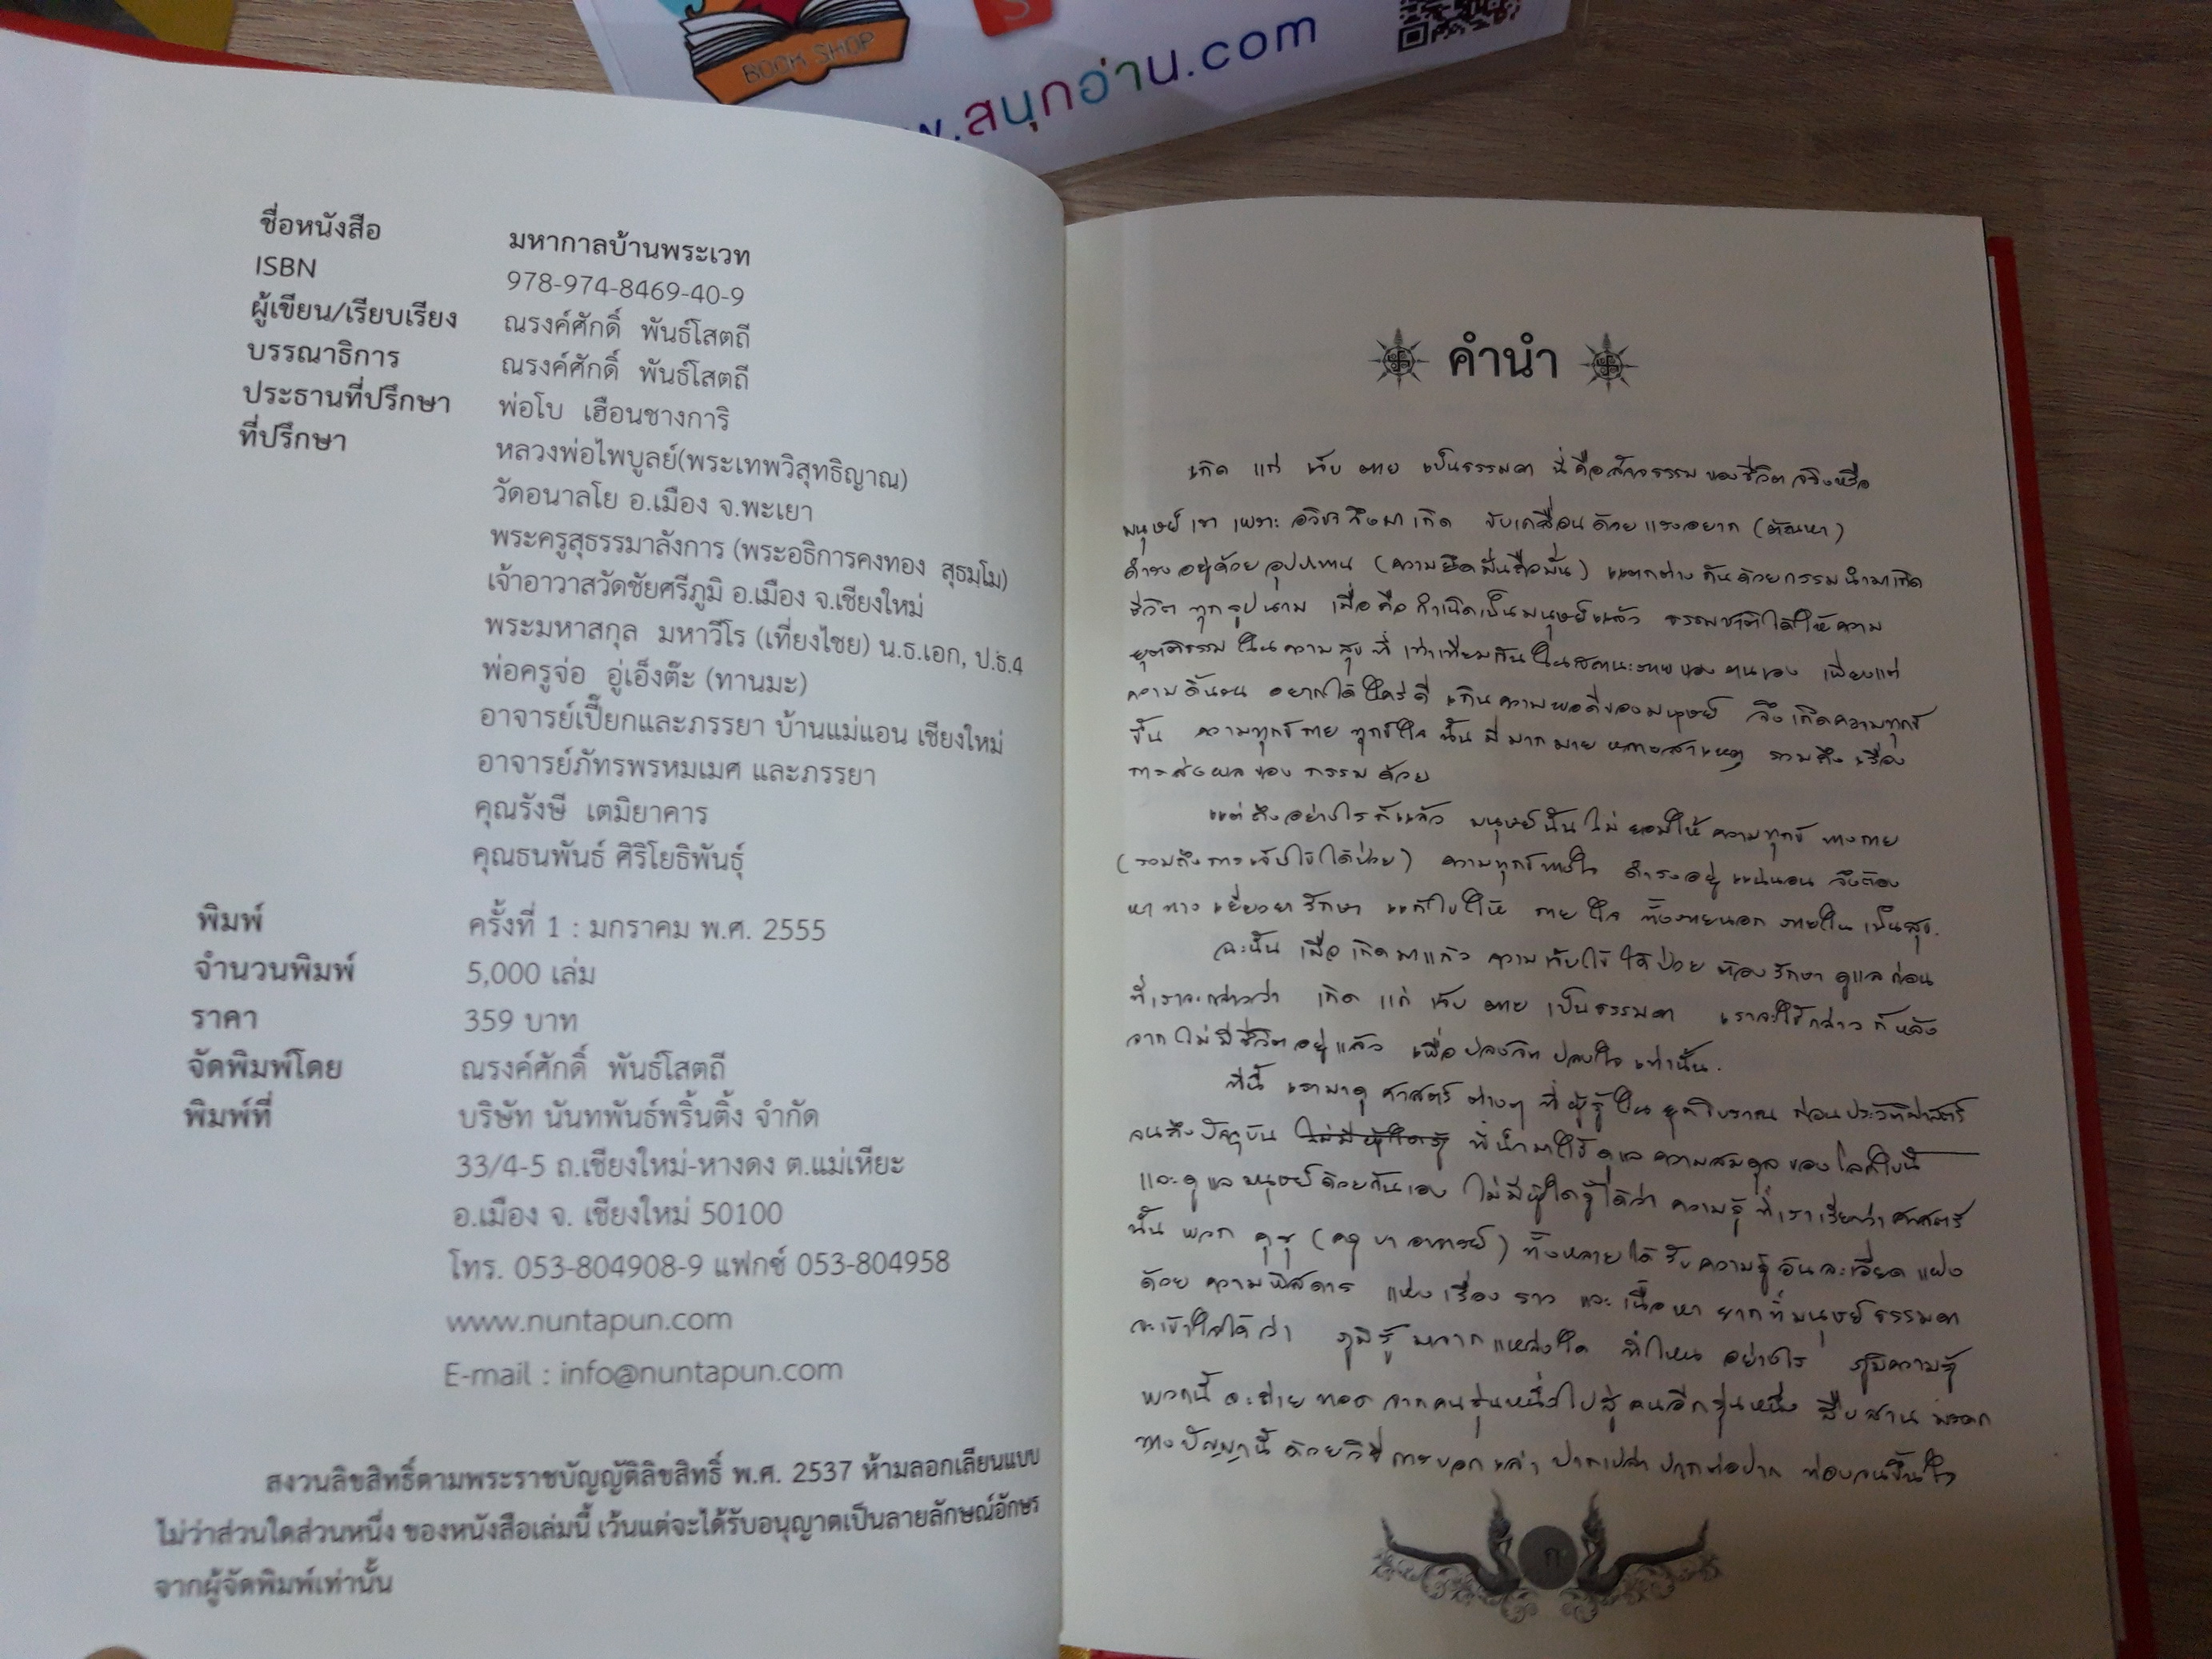 BOOK SHOP
w.สนุกอ่าน.com
ชื่อหนังสือ มหากาลบ้านพระเวท
ISBN 978-974-8469-40-9
ผู้เขียน/เรียบเรียง ณรงค์ศักดิ์ พันธ์โสตถี
บรรณาธิการ ณรงค์ศักดิ์ พันธ์โสตถี
ประธานที่ปรึกษา พ่อโบ เฮือนชางการิ
ที่ปรึกษา หลวงพ่อไพบูลย์(พระเทพวิสุทธิญาณ)
วัดอนาลโย อ.เมือง จ.พะเยา
พระครูสุธรรมาลังการ (พระอธิการคงทอง สุธมฺโม)
เจ้าอาวาสวัดชัยศรีภูมิ อ.เมือง จ.เชียงใหม่
พระมหาสกุล มหาวีโร (เที่ยงไชย) น.ธ.เอก, ป.ธ.4
พ่อครูจ่อ อู่เอ็งต๊ะ (ทานมะ)
อาจารย์เปี๊ยกและภรรยา บ้านแม่แอน เชียงใหม่
อาจารย์ภัทรพรหมเมศ และภรรยา
คุณรังษี เตมิยาคาร
คุณธนพันธ์ ศิริโยธิพันธุ์
พิมพ์ ครั้งที่ 1 : มกราคม พ.ศ. 2555
จำนวนพิมพ์ 5,000 เล่ม
ราคา 359 บาท
จัดพิมพ์โดย ณรงค์ศักดิ์ พันธ์โสตถี
พิมพ์ที่ บริษัท นันทพันธ์พริ้นติ้ง จำกัด
33/4-5 ถ.เชียงใหม่-หางดง ต.แม่เหียะ
อ.เมือง จ. เชียงใหม่ 50100
โทร. 053-804908-9 แฟกซ์ 053-804958
www.nuntapun.com
E-mail : info@nuntapun.com
สงวนลิขสิทธิ์ตามพระราชบัญญัติลิขสิทธิ์ พ.ศ. 2537 ห้ามลอกเลียนแบบ
ไม่ว่าส่วนใดส่วนหนึ่ง ของหนังสือเล่มนี้ เว้นแต่จะได้รับอนุญาตเป็นลายลักษณ์อักษร
จากผู้จัดพิมพ์เท่านั้น
คำนำ
เกิด แก่ เจ็บ ตาย เป็นธรรมดา นี่คือสัจธรรมของชีวิต จริงหรือ
มนุษย์เรา เพราะ อวิชาจึงมาเกิด ขับเคลื่อนด้วยแรงอยาก (ตัณหา)
ดำรงอยู่ด้วยอุปาทาน (ความยึดมั่นถือมั่น) แตกต่างกันด้วยกรรมนำมาเกิด
ชีวิต ทุกรูปนาม เมื่อถือกำเนิดเป็นมนุษย์แล้ว ธรรมชาติได้ให้ความ
ยุติธรรมในความสุขที่เท่าเทียมกันในสถานะภาพของตนเอง เพียงแต่
ความดิ้นรน อยากได้ใคร่ดี เกินความพอดีของมนุษย์ จึงเกิดความทุกข์
ขึ้น ความทุกข์กาย ทุกข์ใจ นั้นมีมากมายหลายสาเหตุ รวมถึงเรื่อง
การส่งผลของกรรมด้วย
แต่ถึงอย่างไรก็แล้ว มนุษย์นั้นไม่ยอมให้ความทุกข์ทางกาย
(รวมถึงการเจ็บไข้ได้ป่วย) ความทุกข์ทางใจ ดำรงอยู่แน่นอน จึงต้อง
หาทางเยียวยารักษา แก้ไขให้ กายใจ ทั้งภายนอกภายในเป็นสุข.
ฉะนั้น เมื่อเกิดมาแล้ว ความเจ็บไข้ได้ป่วย ต้องรักษาดูแลก่อน
ที่เราจะกล่าวว่า เกิด แก่ เจ็บ ตาย เป็นธรรมดา เราจะใช้กล่าวก็หลัง
จากไม่มีชีวิตอยู่แล้ว เพื่อปลงจิตปลงใจเท่านั้น.
ทีนี้ เรามาดูศาสตร์ต่างๆ ที่ผู้รู้ในยุคโบราณ ก่อนประวัติศาสตร์
จนถึงปัจจุบัน ที่นำมาใช้ดูแลความสมดุลของโลกใบนี้
และดูแลมนุษย์ด้วยกันเอง ไม่มีผู้ใดรู้ได้ว่า ความรู้ที่เราเรียกว่าศาสตร์
นั้น พวก ทั้งหลายได้รับความรู้อันละเอียดแฝง
ด้วยความพิสดาร แห่งเรื่องราว และเนื้อหา ยากที่มนุษย์ธรรมดา
จะเข้าใจได้ว่า ภูมิรู้มาจากแหล่งใด ที่ไหน อย่างไร ภูมิความรู้
พวกนี้จะถ่ายทอดจากคนรุ่นหนึ่งไปสู่คนอีกรุ่นหนึ่ง สืบสานมรดก
ทางปัญญานี้ด้วยวิธีการบอกเล่า ปากเปล่า ปากต่อปาก ท่องจนขึ้นใจ
ก